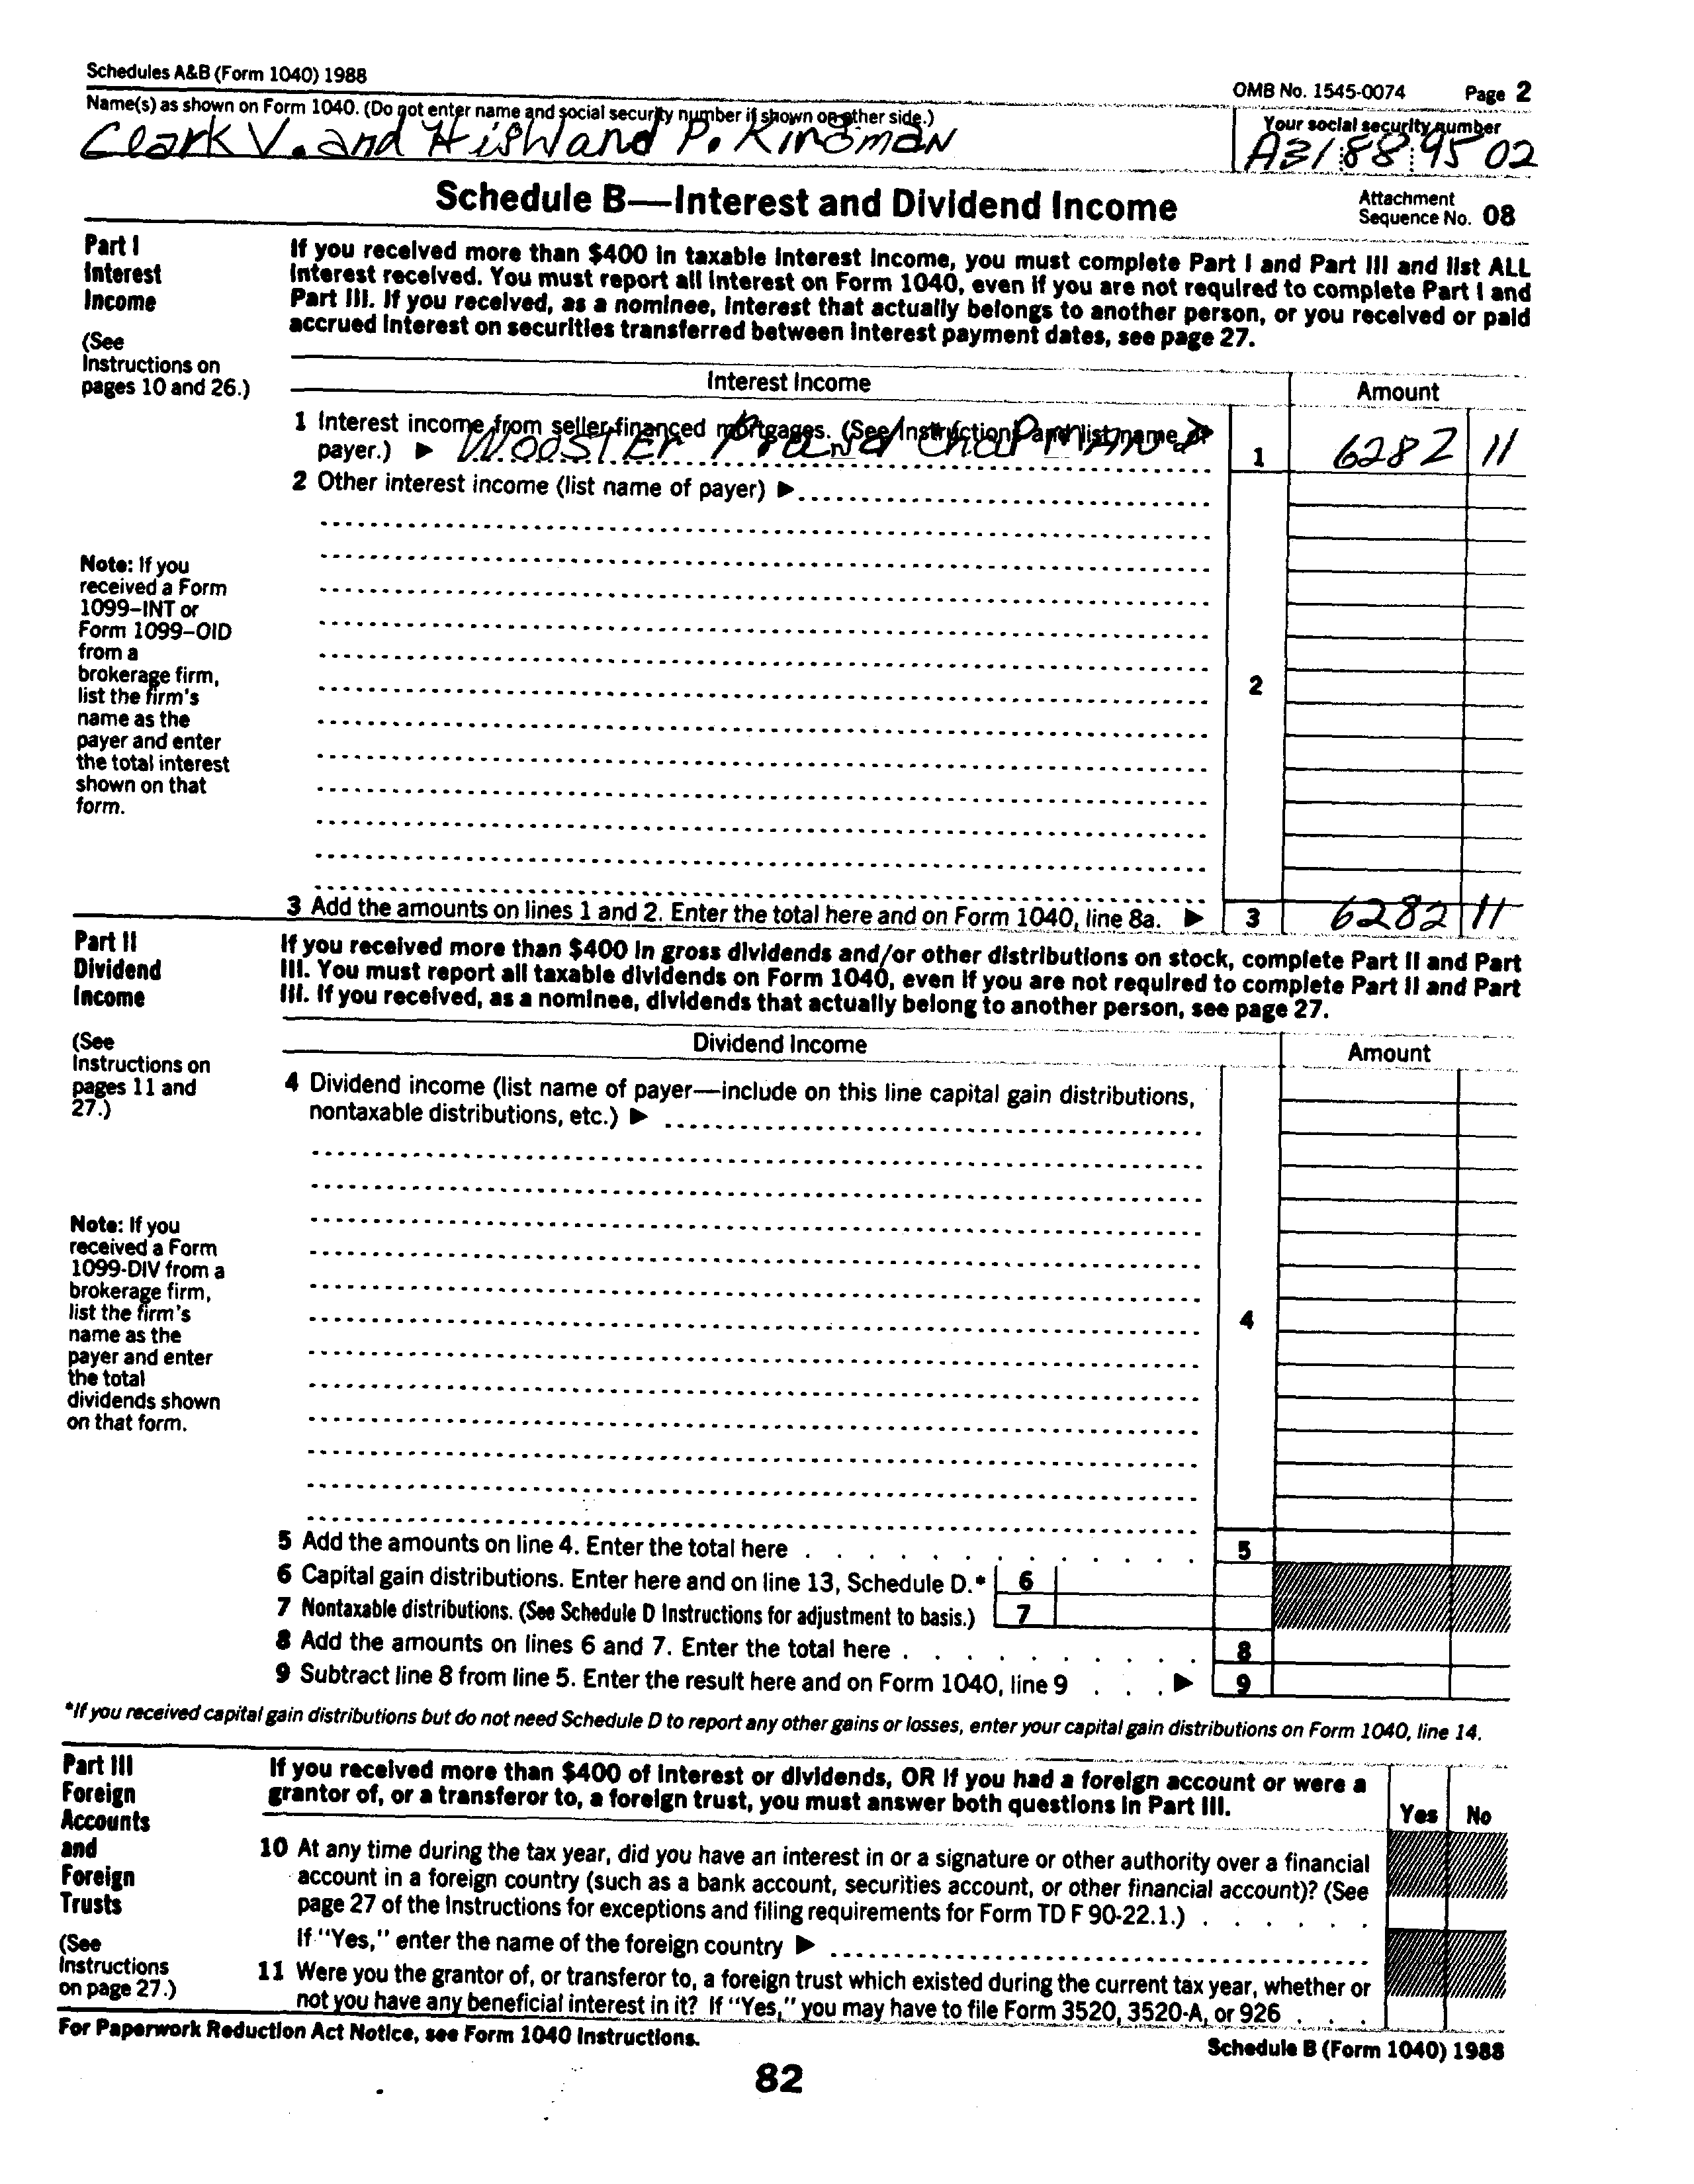 Schedules A&B (Form 1040) 1988
OMB No. 1545-0074 Page 2
Name(s) as shown on Form 1040. (Do not enter name and social security number if shown on other side.)
Your social security number
Clark V. and Highland P. Kingman
A31 88 9502
Schedule B—Interest and Dividend Income
Attachment
Sequence No. 08
Part I
Interest
Income
(See
Instructions on
pages 10 and 26.)
If you received more than $400 in taxable interest income, you must complete Part I and Part III and list ALL
interest received. You must report all interest on Form 1040, even if you are not required to complete Part I and
Part III. If you received, as a nominee, interest that actually belongs to another person, or you received or paid
accrued interest on securities transferred between interest payment dates, see page 27.
Interest Income
Amount
1 Interest income from seller-financed mortgages. (See Instructions and list name of
payer.) ▶ WOOSTER and ChapMAN
1 6282 11
2 Other interest income (list name of payer) ▶
Note: If you
received a Form
1099–INT or
Form 1099–OID
from a
brokerage firm,
list the firm's
name as the
payer and enter
the total interest
shown on that
form.
2
3 Add the amounts on lines 1 and 2. Enter the total here and on Form 1040, line 8a. ▶ 3 6282 11
Part II
Dividend
Income
(See
Instructions on
pages 11 and
27.)
If you received more than $400 in gross dividends and/or other distributions on stock, complete Part II and Part
III. You must report all taxable dividends on Form 1040, even if you are not required to complete Part II and Part
III. If you received, as a nominee, dividends that actually belong to another person, see page 27.
Dividend Income
Amount
4 Dividend income (list name of payer—include on this line capital gain distributions,
nontaxable distributions, etc.) ▶
Note: If you
received a Form
1099-DIV from a
brokerage firm,
list the firm's
name as the
payer and enter
the total
dividends shown
on that form.
4
5 Add the amounts on line 4. Enter the total here . . . . . . . . . . . . 5
6 Capital gain distributions. Enter here and on line 13, Schedule D.* 6
7 Nontaxable distributions. (See Schedule D Instructions for adjustment to basis.) 7
8 Add the amounts on lines 6 and 7. Enter the total here . . . . . . . . . . 8
9 Subtract line 8 from line 5. Enter the result here and on Form 1040, line 9 . . . ▶ 9
*If you received capital gain distributions but do not need Schedule D to report any other gains or losses, enter your capital gain distributions on Form 1040, line 14.
Part III
Foreign
Accounts
and
Foreign
Trusts
(See
Instructions
on page 27.)
If you received more than $400 of interest or dividends, OR if you had a foreign account or were a
grantor of, or a transferor to, a foreign trust, you must answer both questions in Part III.
Yes No
10 At any time during the tax year, did you have an interest in or a signature or other authority over a financial
account in a foreign country (such as a bank account, securities account, or other financial account)? (See
page 27 of the Instructions for exceptions and filing requirements for Form TD F 90-22.1.) . . . . . .
If "Yes," enter the name of the foreign country ▶
11 Were you the grantor of, or transferor to, a foreign trust which existed during the current tax year, whether or
not you have any beneficial interest in it? If "Yes," you may have to file Form 3520, 3520-A, or 926 . . .
For Paperwork Reduction Act Notice, see Form 1040 Instructions.
Schedule B (Form 1040) 1988
82